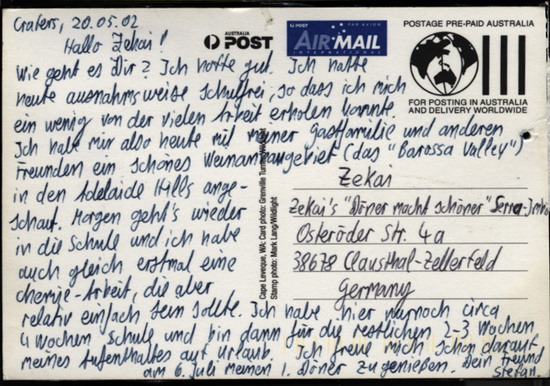 Crafers, 20.05.02
Hallo Zekai!
Wie geht es Dir? Ich hoffe gut. Ich hatte
heute ausnahmsweise schulfrei, so dass ich mich
ein wenig von der vielen Arbeit erholen konnte.
Ich hab mir also heute mit meiner Gastfamilie und anderen
Freunden ein schönes Weinanbaugebiet (das "Barossa Valley")
in den Adelaide Hills ange-
schaut. Morgen geht's wieder
in die Schule und ich habe
auch gleich erstmal eine
Chemie-Arbeit, die aber
relativ einfach sein sollte. Ich habe hier nurnoch circa
4 Wochen Schule und bin dann für die restlichen 2-3 Wochen
meines Aufenthaltes auf Urlaub. Ich freue mich schon darauf
am 6. Juli meinen 1. Döner zu genießen. Dein Freund
Stefan.
AUSTRALIA
POST
AIR MAIL
PAR AVION
POSTAGE PRE-PAID AUSTRALIA
FOR POSTING IN AUSTRALIA
AND DELIVERY WORLDWIDE
Cape Leveque, WA: Card photo: Grenville Turner/Wildlight
Stamp photo: Mark Lang/Wildlight
Zekai
Zekai's "Döner macht schöner"
Osteröder Str. 4a
38678 Clausthal-Zellerfeld
Germany